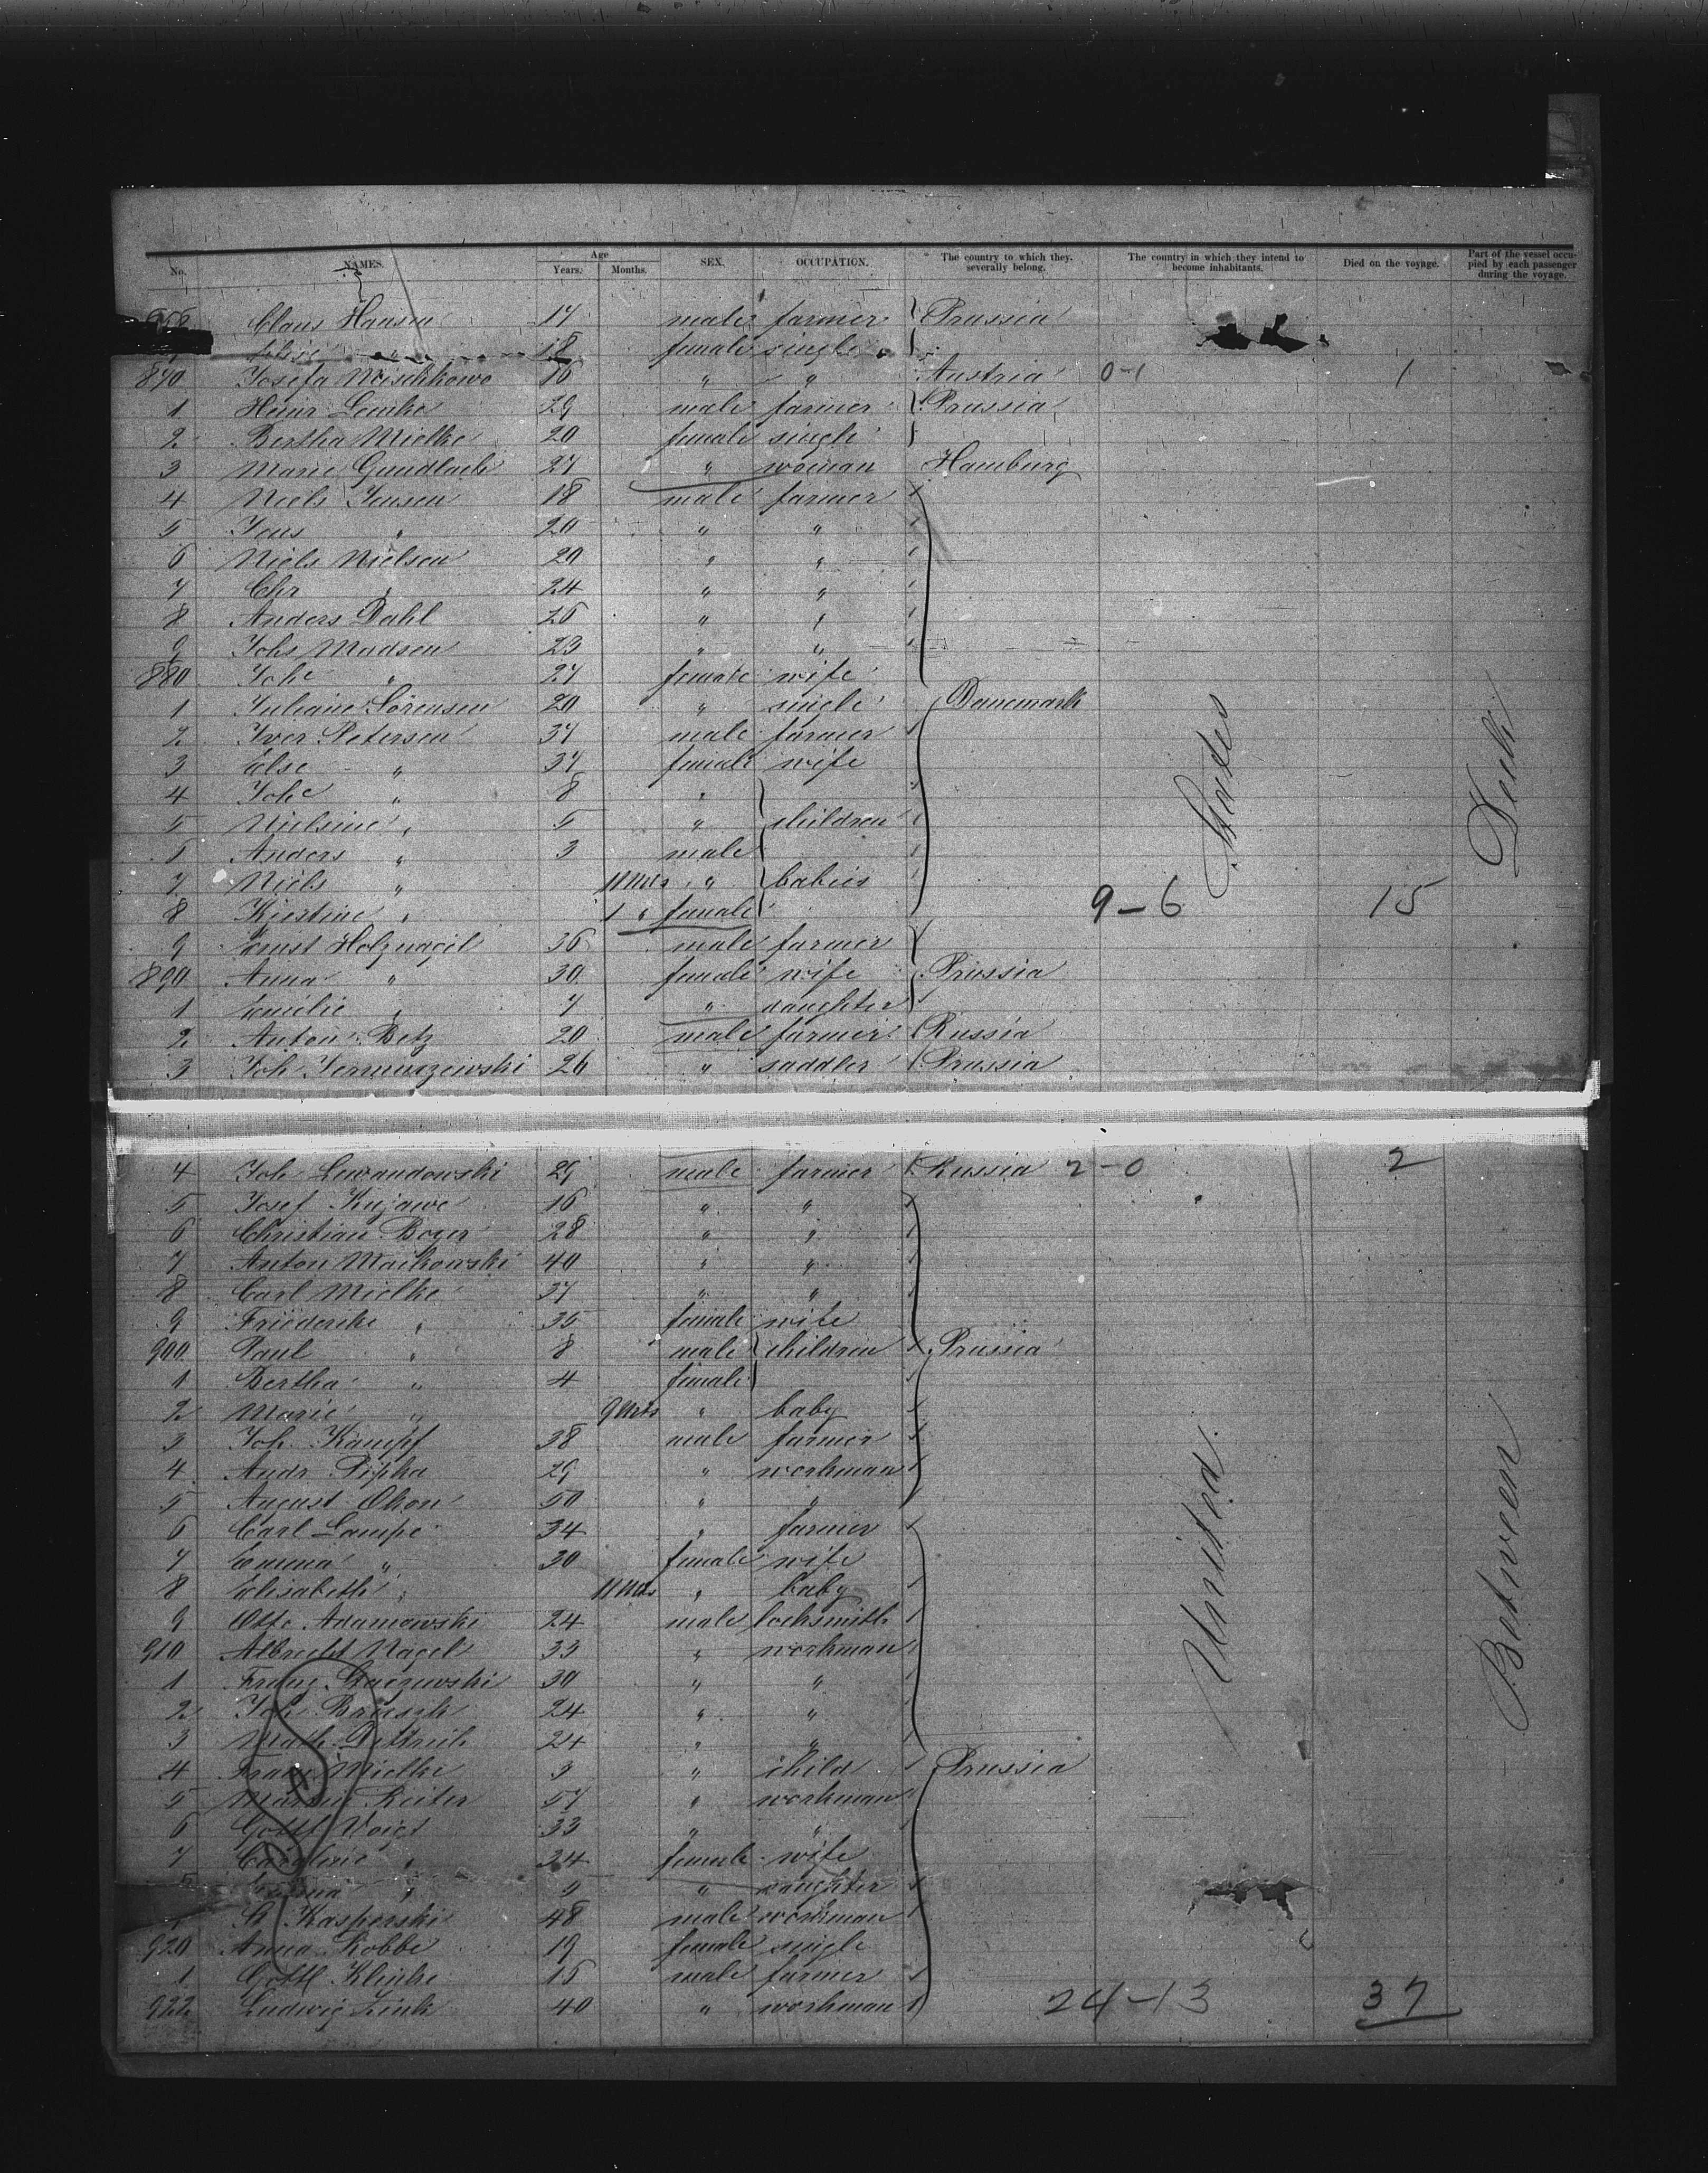 No. NAMES. Age Years. Months. SEX. OCCUPATION. The country to which they severally belong. The country in which they intend to become inhabitants. Died on the voyage. Part of the vessel occupied by each passenger during the voyage.
Claus Hansen 17 male farmer Prussia
18 female single "
870 Josefa 16 " " Austria 0-1 1
1 Heinr Lemke 29 male farmer Prussia
2 Bertha Mielke 20 female single
3 Marie Gundlach 27 " woman Hamburg
4 Niels Jensen 18 male farmer
5 Jens " 20 " "
6 Niels Nielsen 20 " "
7 Chr " 24 " "
8 Anders Dahl 26 " "
9 Johs Madsen 23 " "
880 Johe " 27 female wife
1 Juliane Sörensen 20 " single Danemark
2 Iver Petersen 37 male farmer
3 Else " 37 female wife
4 Johe " 8 "
5 Nielsine " 5 " children
Anders " 3 male
7 Niels " 11 Mts " babies
8 Kjerstine " 1 " female 9-6 15
9 Ernst Holznagel 36 male farmer
890 Anna " 30 female wife Prussia
1 Emelie " 7 " daughter
2 Anton Betz 20 male farmer Russia
3 Joh 26 " saddler Prussia
4 Joh Lewandowski 29 male farmer Russia 2-0 2
5 Josef Kujawe 16 " "
6 Christian Boger 28 " "
7 Anton Maikowski 40 " "
8 Carl Mielke 37 " "
9 Friedericke " 35 female wife
900 Paul " 8 male children Prussia
1 Bertha " 4 female
2 Marie " 9 Mts " baby
3 Joh Kämpf 38 male farmer
4 Andr Pipka 29 " workman
5 August Okon 50 " "
6 Carl Lampe 34 " farmer
7 Emma " 30 female wife
8 Elisabeth " 11 Mts " baby
9 Otto Adamowski 24 male locksmith
910 Albrecht Nagel 33 " workman
1 Franz 30 " "
2 Joh 24 " "
3 Math Dettrich 24 " "
4 Franz Mielke 3 " child Prussia
5 Martin Reiter 57 " workman
6 Gottl Voigt 33 " "
7 Caroline " 34 female wife
Emma " 5 " daughter
St Kasperski 48 male workman
920 Anna Kobbe 19 female single
1 Gottl Klinke 15 male farmer
922 Ludwig Link 40 " workman 24-13 37
United States
Between Deck